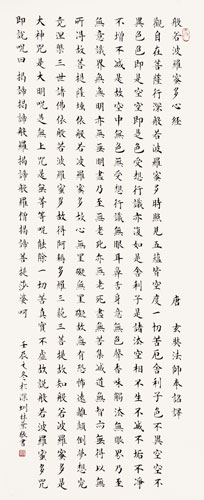 般若波羅蜜多心經 唐 玄奘法師奉詔譯
觀自在菩薩行深般若波羅蜜多時照見五蘊皆空度一切苦厄舍利子色不異空空不
異色色即是空空即是色受想行識亦復如是舍利子是諸法空相不生不滅不垢不淨
不增不減是故空中無色無受想行識無眼耳鼻舌身意無色聲香味觸法無眼界乃至
無意識界無無明亦無無明盡乃至無老死亦無老死盡無苦集滅道無智亦無得以無
所得故菩提薩埵依般若波羅蜜多故心無罣礙無罣礙故無有恐怖遠離顛倒夢想究
竟涅槃三世諸佛依般若波羅蜜多故得阿耨多羅三藐三菩提故知般若波羅蜜多是
大神咒是大明咒是無上咒是無等等咒能除一切苦真實不虛故說般若波羅蜜多咒
即說咒曰 揭諦揭諦般羅揭諦般羅僧揭諦菩提莎婆訶
壬辰之冬於深圳林景書